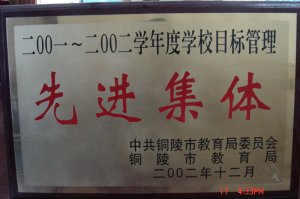 二00一～二00二学年度学校目标管理
先进集体
中共铜陵市教育局委员会
铜陵市教育局
二00二年十二月
17 4:33PM